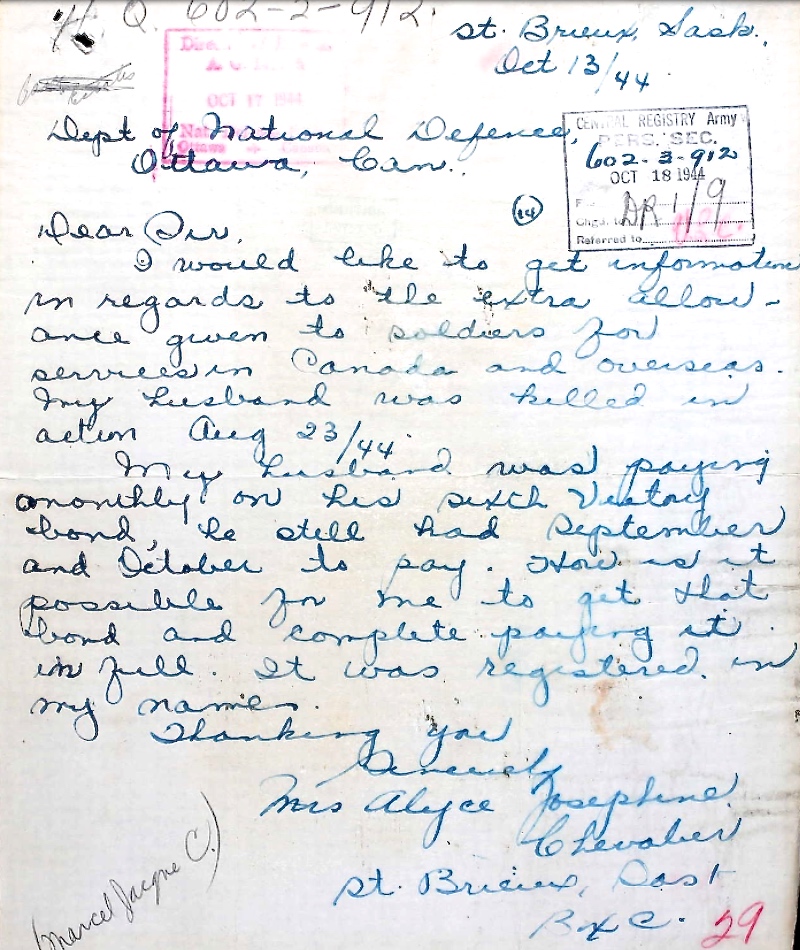 H. Q. 602-2-912.
St. Brieux, Sask.
Oct 13/44.
OCT 17 1944
Dept of National Defence,
Ottawa, Can..
CENTRAL REGISTRY Army
PERS. SEC.
602-3-912
OCT 18 1944
DR 1/9
Chgd. to
Referred to
14
Dear Sir,
I would like to get information
in regards to the extra allow-
ance given to soldiers for
services in Canada and overseas.
My husband was killed in
action Aug 23/44.
My husband was paying
monthly on his sixth Victory
bond, he still had September
and October to pay. How is it
possible for me to get that
bond and complete paying it
in full. It was registered in
my name.
Thanking you
Sincerely
Mrs Alyce Josephine
Chevalier
St. Brieux, Sask
Bx C.
(Marcel Jacque C.)
29